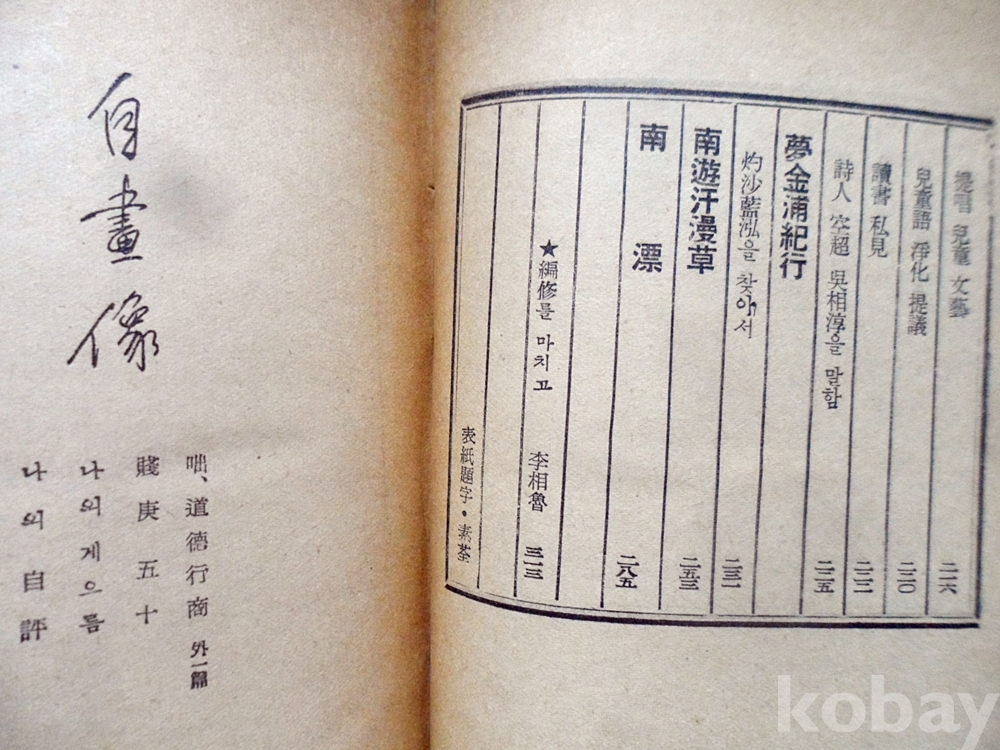 提唱 兒童 文藝 二一六
兒童語 淨化 提議 二二〇
讀書 私見 二二二
詩人 空超 吳相淳을 말함 二二五
夢金浦紀行
灼沙藍泓을 찾아서 二三一
南遊汗漫草 二五三
南漂 二八五
★編修를 마치고 李相魯 三一三
表紙題字・素荃
自畫像
咄、道德行商 外一篇
賤庚五十
나의게으름
나의自評
kobay